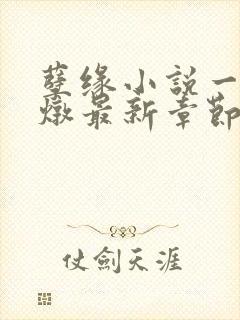 孽缘小説一
燉最新章節
仗劍天涯